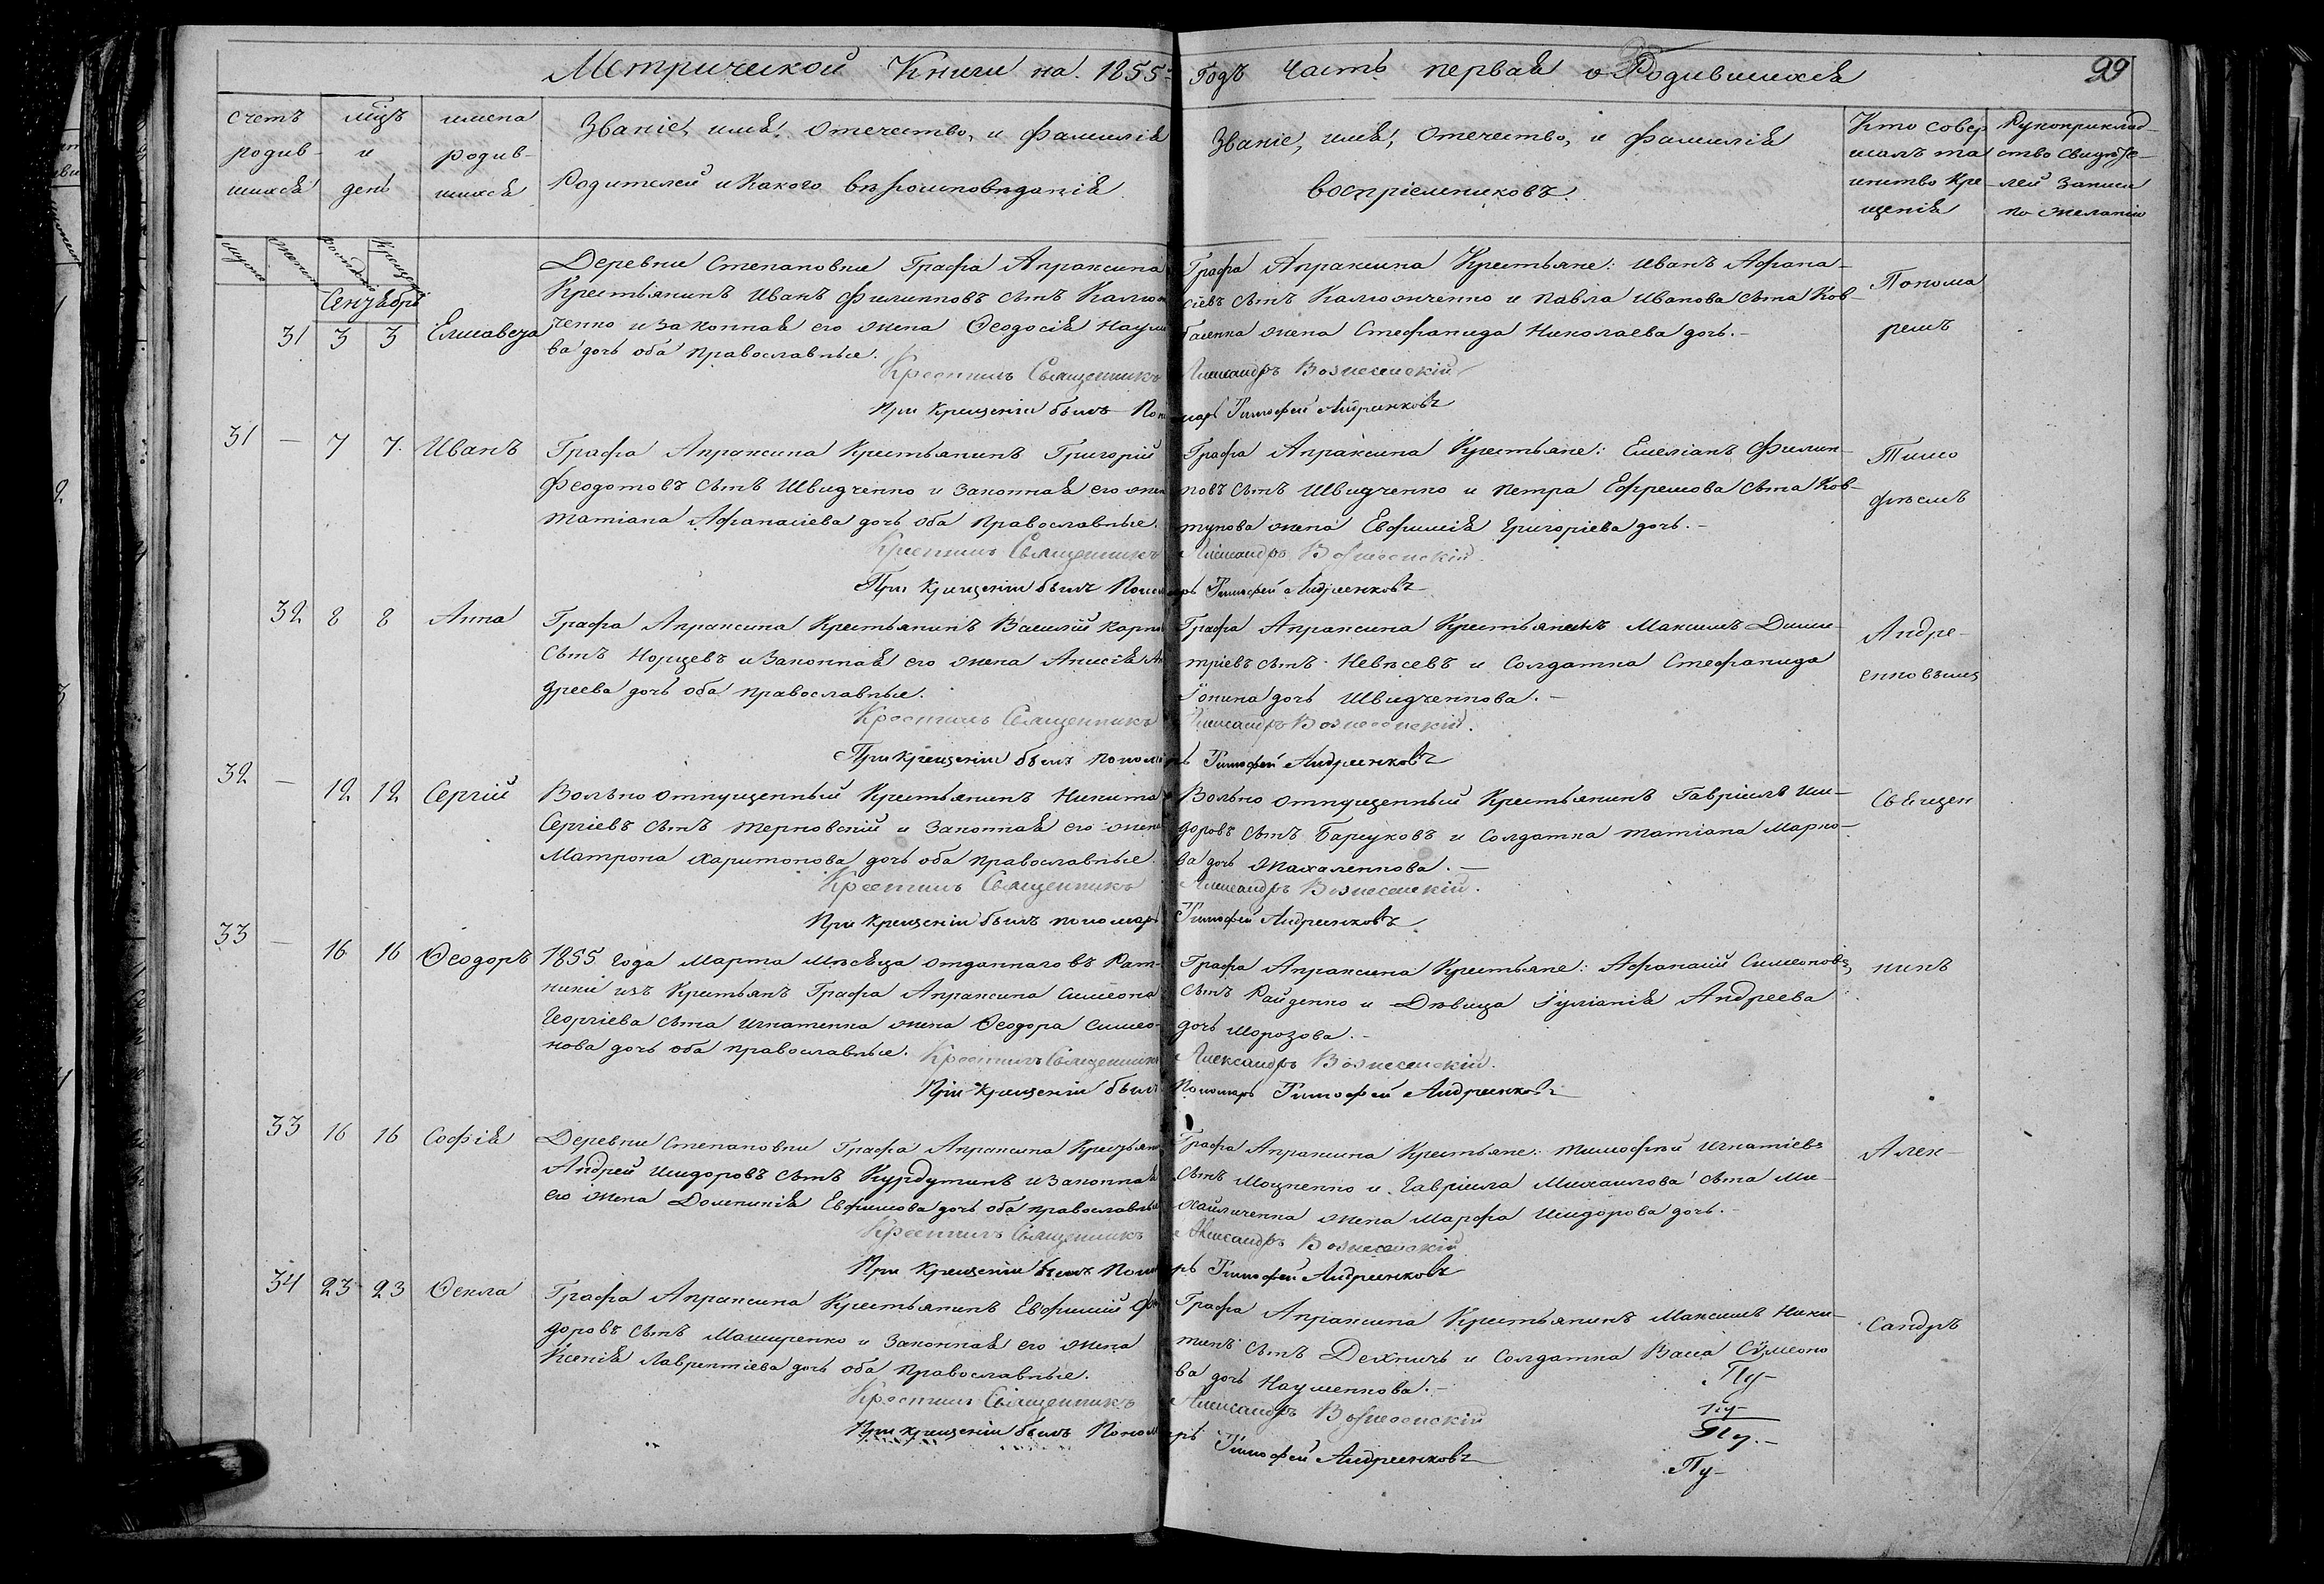 Метрической Книги на 1855й Годъ Часть первая о Родившихся
99
счетъ родив-шихся
мцъ и день
имена родив-шихся
Званіе, имя, отечество, и фамилія
Родителей и Какого вѣроисповѣданія
Званіе, имя, отечество, и фамилія
воспріемниковъ.
Кто совер
шалъ та
инство Кре
щенія
Рукоприклад-
ство свидѣте-
лей записи
по желанію
Сентября
31 3 3 Елисавета
Деревни Степановки Графа Апраксина
Крестьянинъ Иванъ Филипповъ сынъ Калюж
ченко и законная его жена Ѳеодосія Наумо
ва дочь оба православные.
Графа Апраксина Крестьяне: Иванъ Афана-
сіевъ сынъ Калюжченко и Павла Иванова сына Ков-
баленка жена Стефанида Николаева дочь.-
Понома
ремъ
Крестилъ Священникъ Александръ Вознесенскій
При крещеніи былъ Пономарь Тимофей Андріенковъ
31 - 7 7. Иванъ
Графа Апраксина Крестьянинъ Григорій
Феодотовъ сынъ Швидченко и законная его жена
Татіана Афанасіева дочь оба православные.
Графа Апраксина Крестьяне: Емеліанъ Филип-
повъ сынъ Швидченко и Петра Ефремова сына Ков-
тунова жена Евфимія Григоріева дочь.-
Тимо
фѣемъ
Крестилъ Священникъ Александръ Вознесенскій
При крещеніи былъ Пономарь Тимофей Андріенковъ
32 8 8 Анна
Графа Апраксина Крестьянинъ Василій Карпо
сынъ Норцевъ и законная его жена Анисія Ан
дреева дочь оба православные.
Графа Апраксина Крестьянинъ Максимъ Дими-
тріевъ сынъ Невѣсевъ и Солдатка Стефанида
Іонина дочь Швидченкова.-
Андре-
енковымъ
Крестилъ Священникъ Александръ Вознесенскій.
При крещеніи былъ пономарь Тимофей Андріенковъ
32 - 12 12 Сергій
Вольно отпущенный Крестьянинъ Никита
Сергіевъ сынъ Терновскій и законная его жена
Матрона Харитонова дочь оба православные.
Вольно отпущенный Крестьянинъ Гавріилъ Иси-
доровъ сынъ Барсуковъ и Солдатка Татіана Марко-
ва дочь Махаленкова.-
Священ
Крестилъ Священникъ Александръ Вознесенскій.
При крещеніи былъ пономарь Тимофей Андріенковъ
33 - 16 16 Ѳеодоръ
1855 года Марта Мѣсяца отданнаго въ Рат-
ники изъ Крестьянъ Графа Апраксина Симеона
Георгіева сына Игнатенка жена Ѳеодора Симео-
нова дочь оба православные.
Графа Апраксина Крестьяне: Афанасій Симеоновъ
сынъ Райденко и Дѣвица Іуліанія Андреева
дочь Морозова.-
никъ
Крестилъ Священникъ Александръ Вознесенскій.
При крещеніи былъ Пономарь Тимофей Андріенковъ
33 16 16 Софія
Деревни Степановки Графа Апраксина Крестьян
Андрей Исидоровъ сынъ Курдутинъ и законная
его жена Домникія Евфимова дочь оба православные
Графа Апраксина Крестьяне: Тимофѣй Игнатіевъ
сынъ Моцненко и Гавріила Михаилова сына Ми-
хайличенка жена Марфа Исидорова дочь.-
Алек-
Крестилъ Священникъ Александръ Вознесенскій
При крещеніи былъ Пономарь Тимофей Андріенковъ
34 23 23 Ѳекла
Графа Апраксина Крестьянинъ Евфимій Фео
доровъ сынъ Маширенко и законная его жена
Ксенія Лаврентіева дочь оба православные.
Графа Апраксина Крестьянинъ Максимъ Ники-
тинъ сынъ Дехничъ и Солдатка Васса Сумеоно
ва дочь Науменкова.-
Сандръ
Крестилъ Священникъ Александръ Вознесенскій
При крещеніи былъ Пономарь Тимофей Андріенковъ
Пу-
Пу-
Пу.-
Пу-